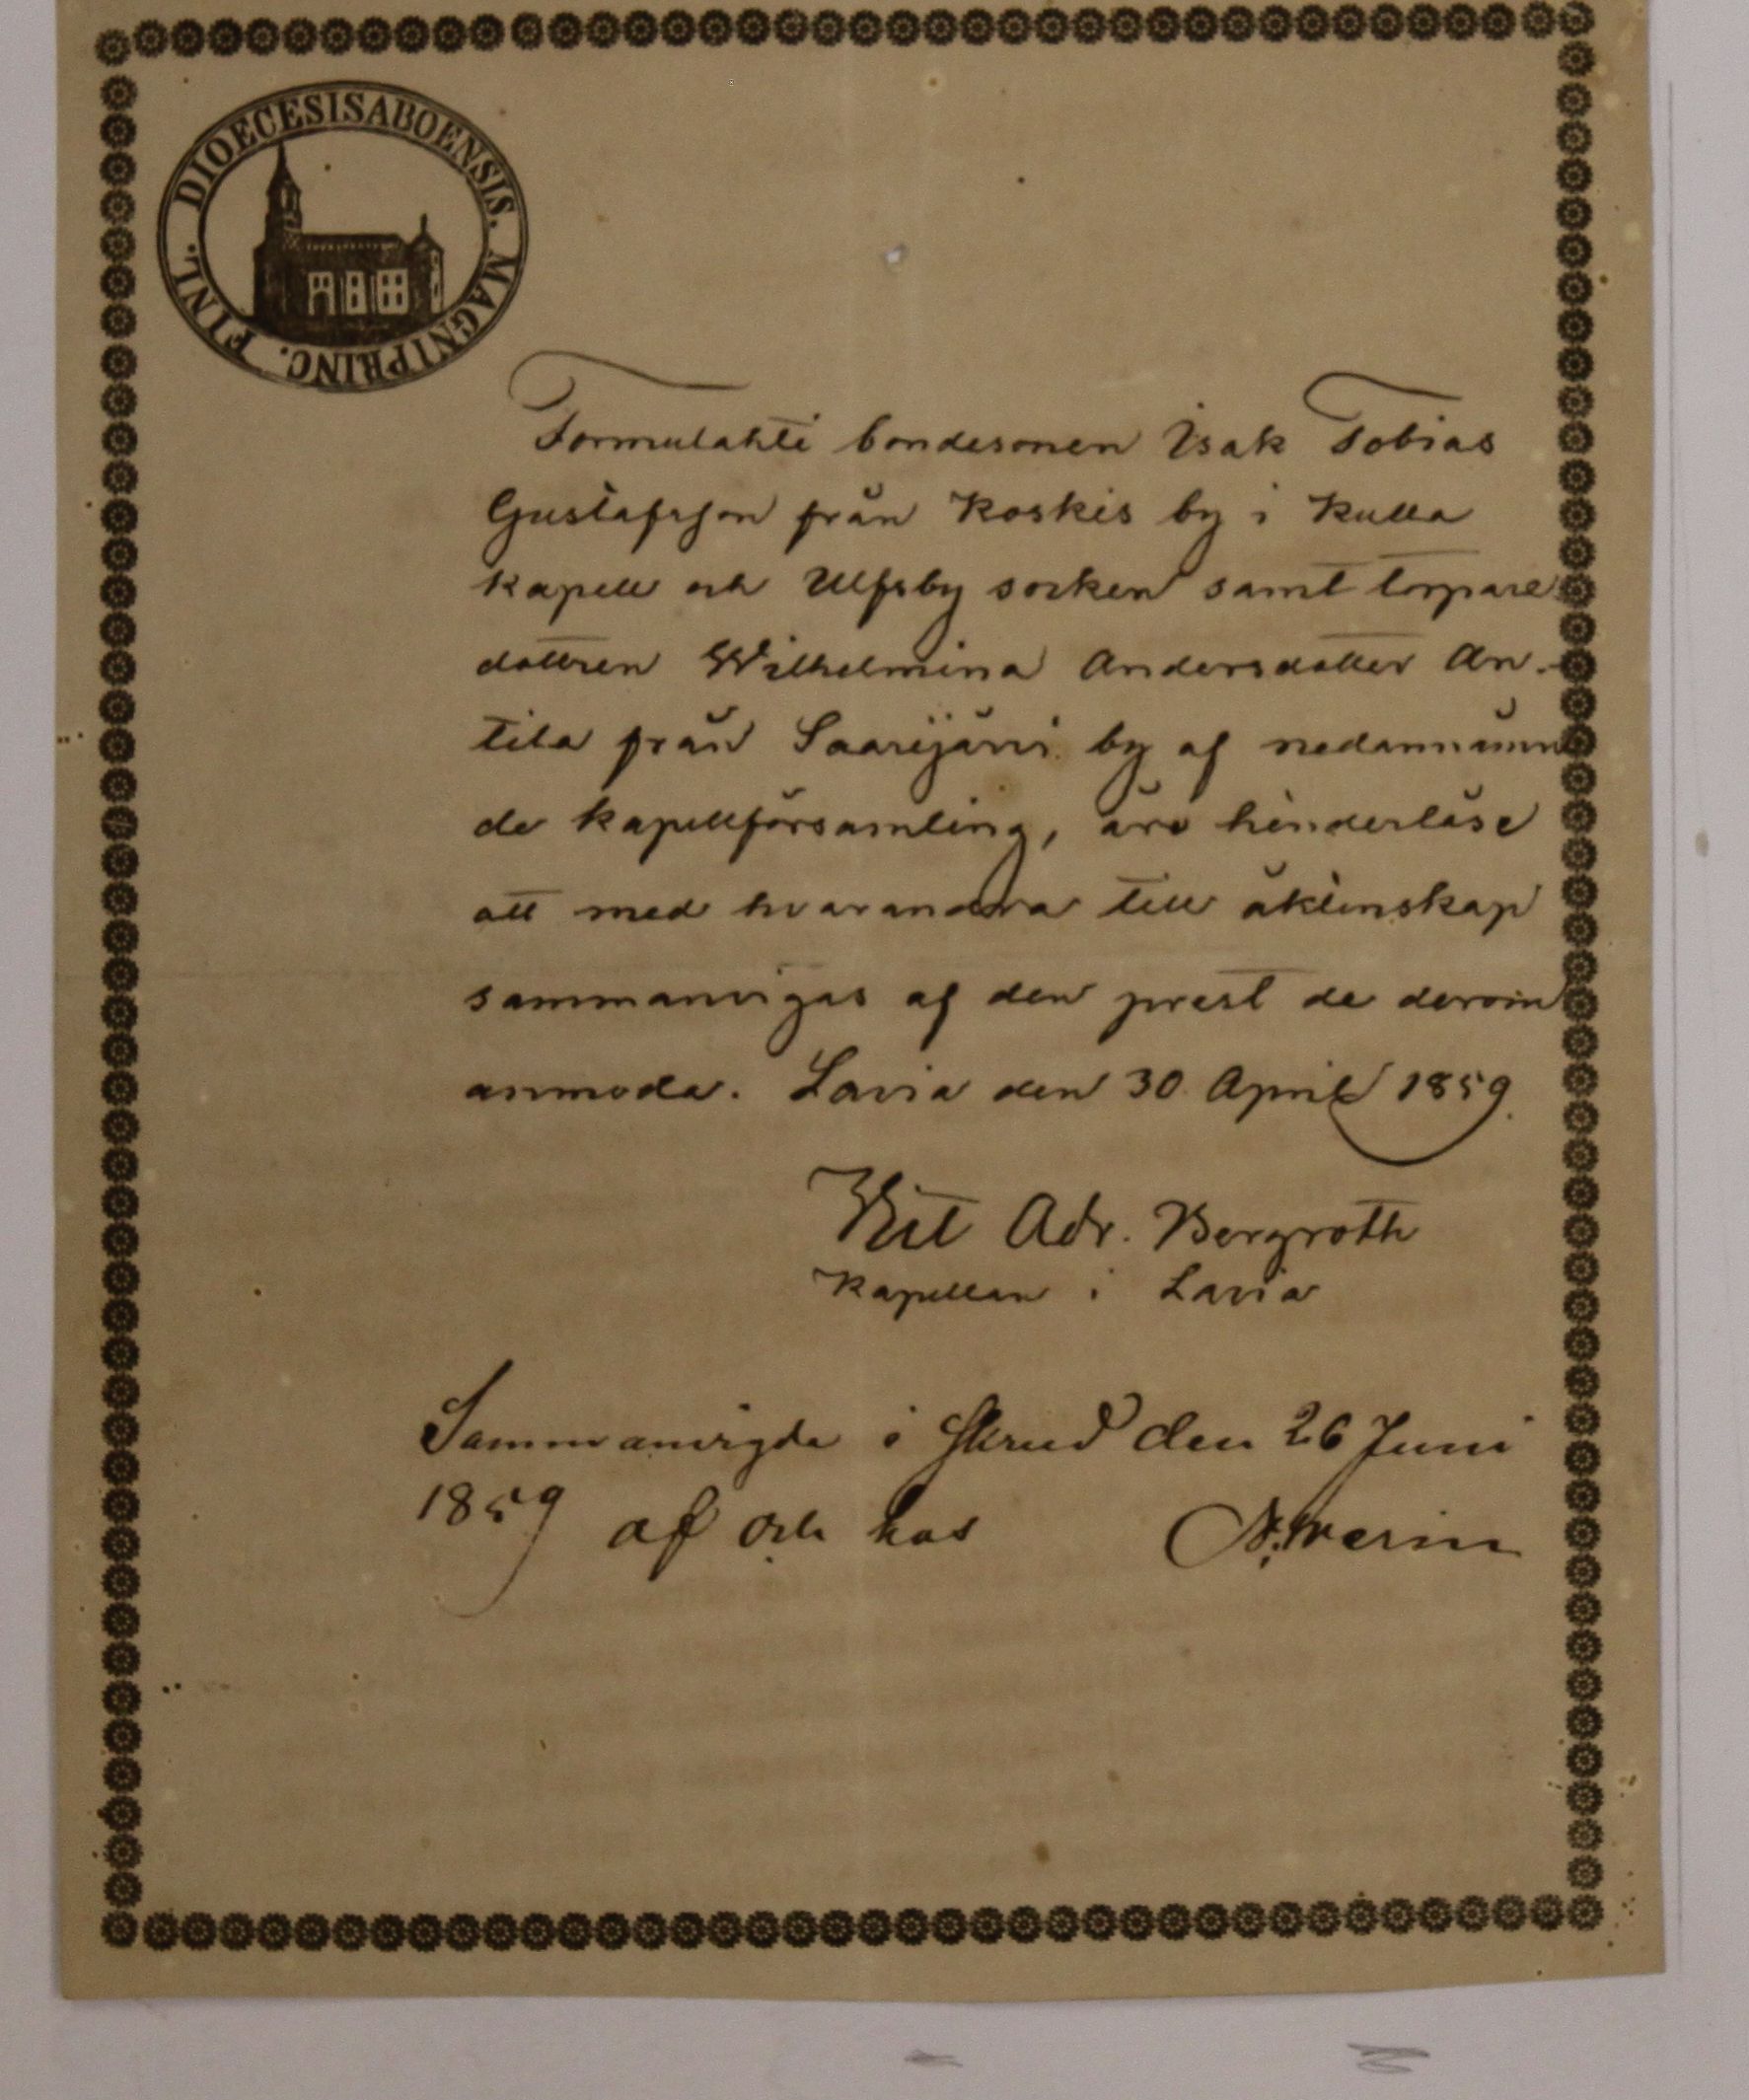 DIOECESIS ABOENSIS. MAGNI PRINC. FINL.
Tormulahti bondesonen Isak Tobias
Gustafsson från Koskis by i Kulla
kapell och Ulfsby socken samt torpare
dottren Wilhelmina Andersdotter An-
tila från Saarijärvi by af nedannämn
de kapellförsamling, äro hinderlöse
att med hvarandra till äktenskap
sammanvigas af den prest de derom
anmoda. Lavia den 30 April 1859.
Adr. Bergroth
Kapellan i Lavia
Sammanvigde i den 26 Juni
1859 af och hos